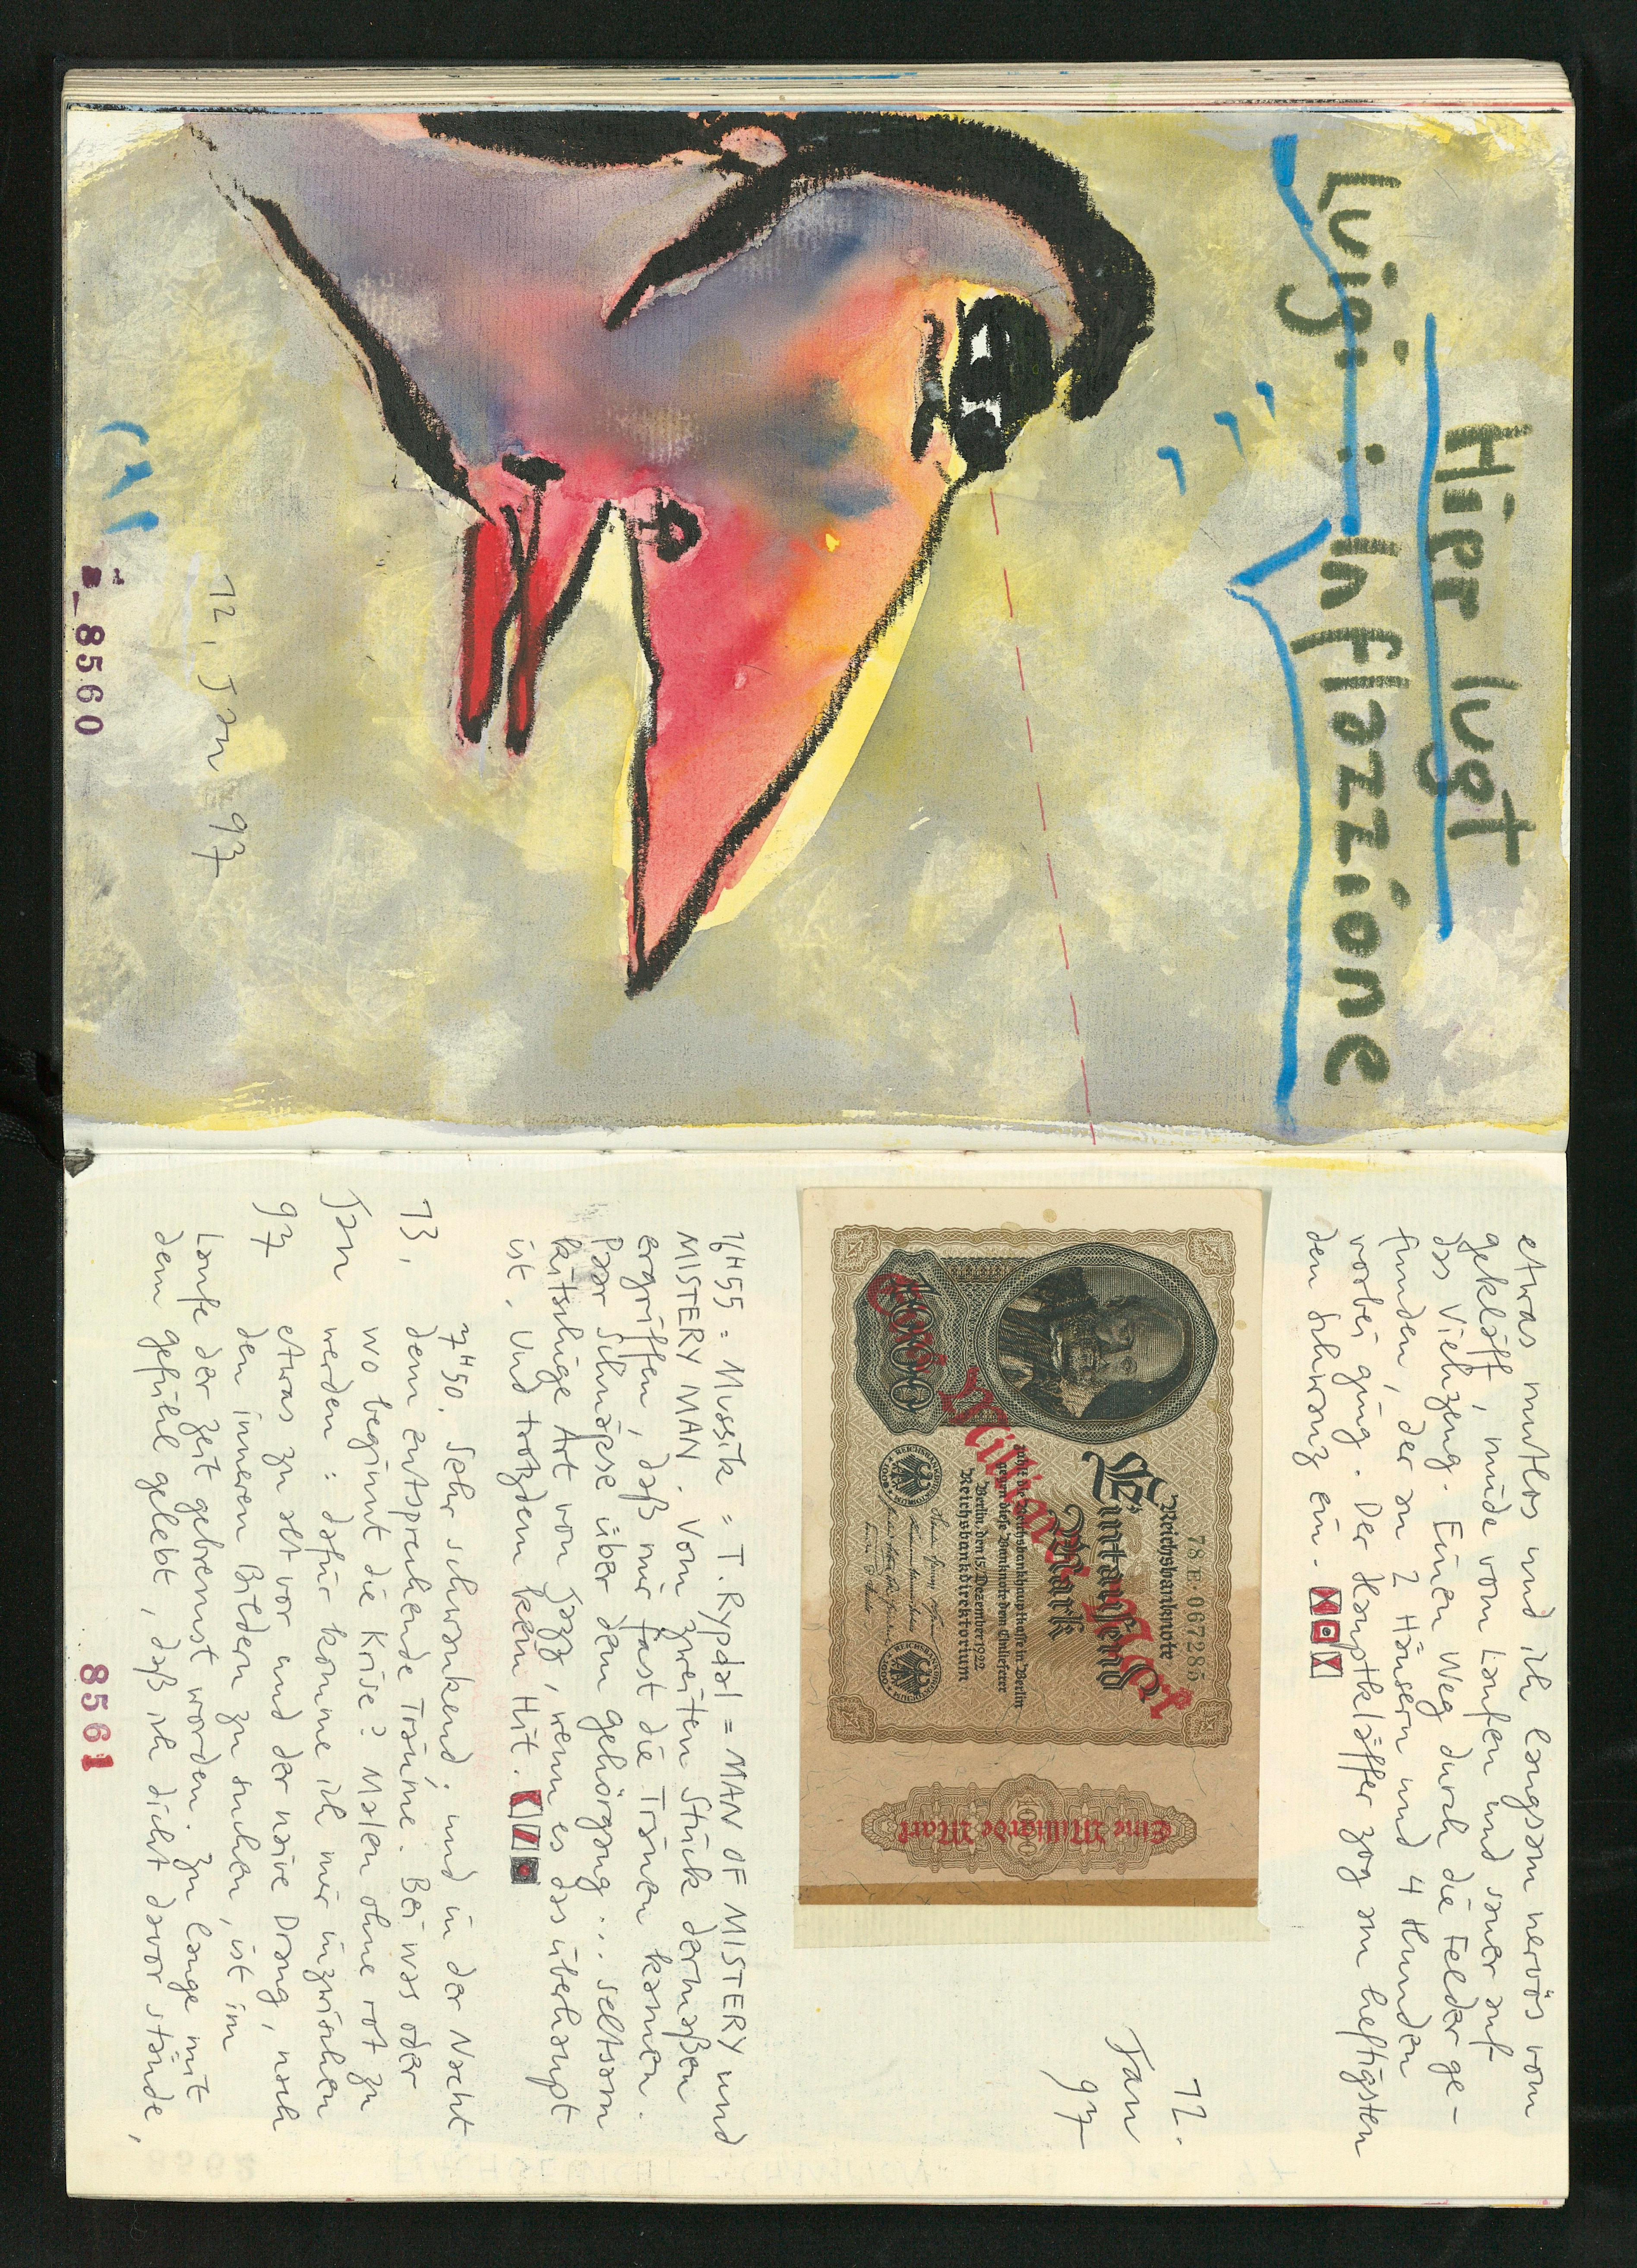 Hier lugt
Luigi: Inflazzione
12. Jan 97
8560
etwas mutlos und ich langsam nervös vom
gekläff, müde vom Laufen und sauer auf
das Viehzeug. Einen Weg durch die Felder ge-
funden, der an 2 Häusern und 4 Hunden
vorbei ging. Der Hauptkläffer zog am heftigsten
den Schwanz ein.
12.
Jan
97
78 E· 067285
Reichsbanknote
Eintausend
Mark
zahlt die Reichsbankhauptkasse in Berlin
gegen diese Banknote dem Einlieferer
Berlin, den 15. Dezember 1922
Reichsbankdirektorium
1000
Eine Milliarde Mark
Eine Milliarde Mark
16H55 = Mussik = T. Rypdal = MAN OF MISTERY und
MISTERY MAN. Vom zweiten Stück dermaßen
ergriffen, daß mir fast die Tränen kamen.
Paar Schnäpse über dem gehörgang... seltsam
kitschige Art von Jazz, wenn es das überhaupt
ist. Und trotzdem kein Hit.
13.
Jan
97
7H50. Sehr schwankend; und in der Nacht
dem entsprechende Träume. Bei was oder
wo beginnt die Krise? Malen ohne rot zu
werden: dafür komme ich mir inzwischen
etwas zu alt vor und der naive Drang, nach
den inneren Bildern zu suchen, ist im
Laufe der Zeit gebremst worden. Zu lange mit
dem gefühl gelebt, daß ich dicht davor stände,
8561